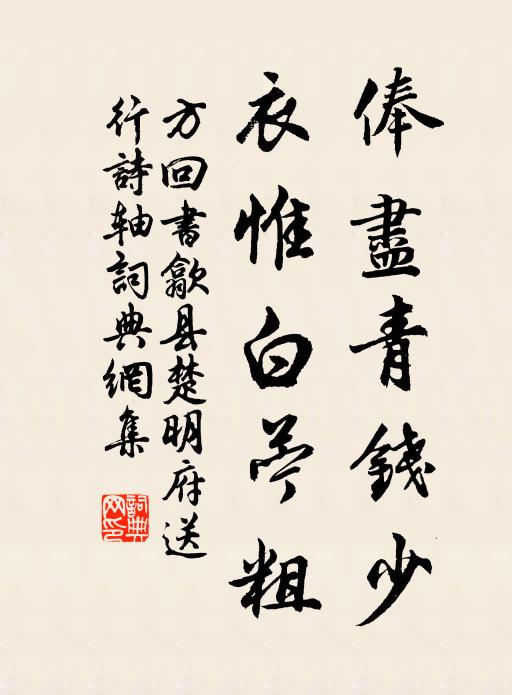 俸盡青錢少
衣惟白苧粗
方回書歙县楚明府送
行詩轴詞典網集
詞典网印